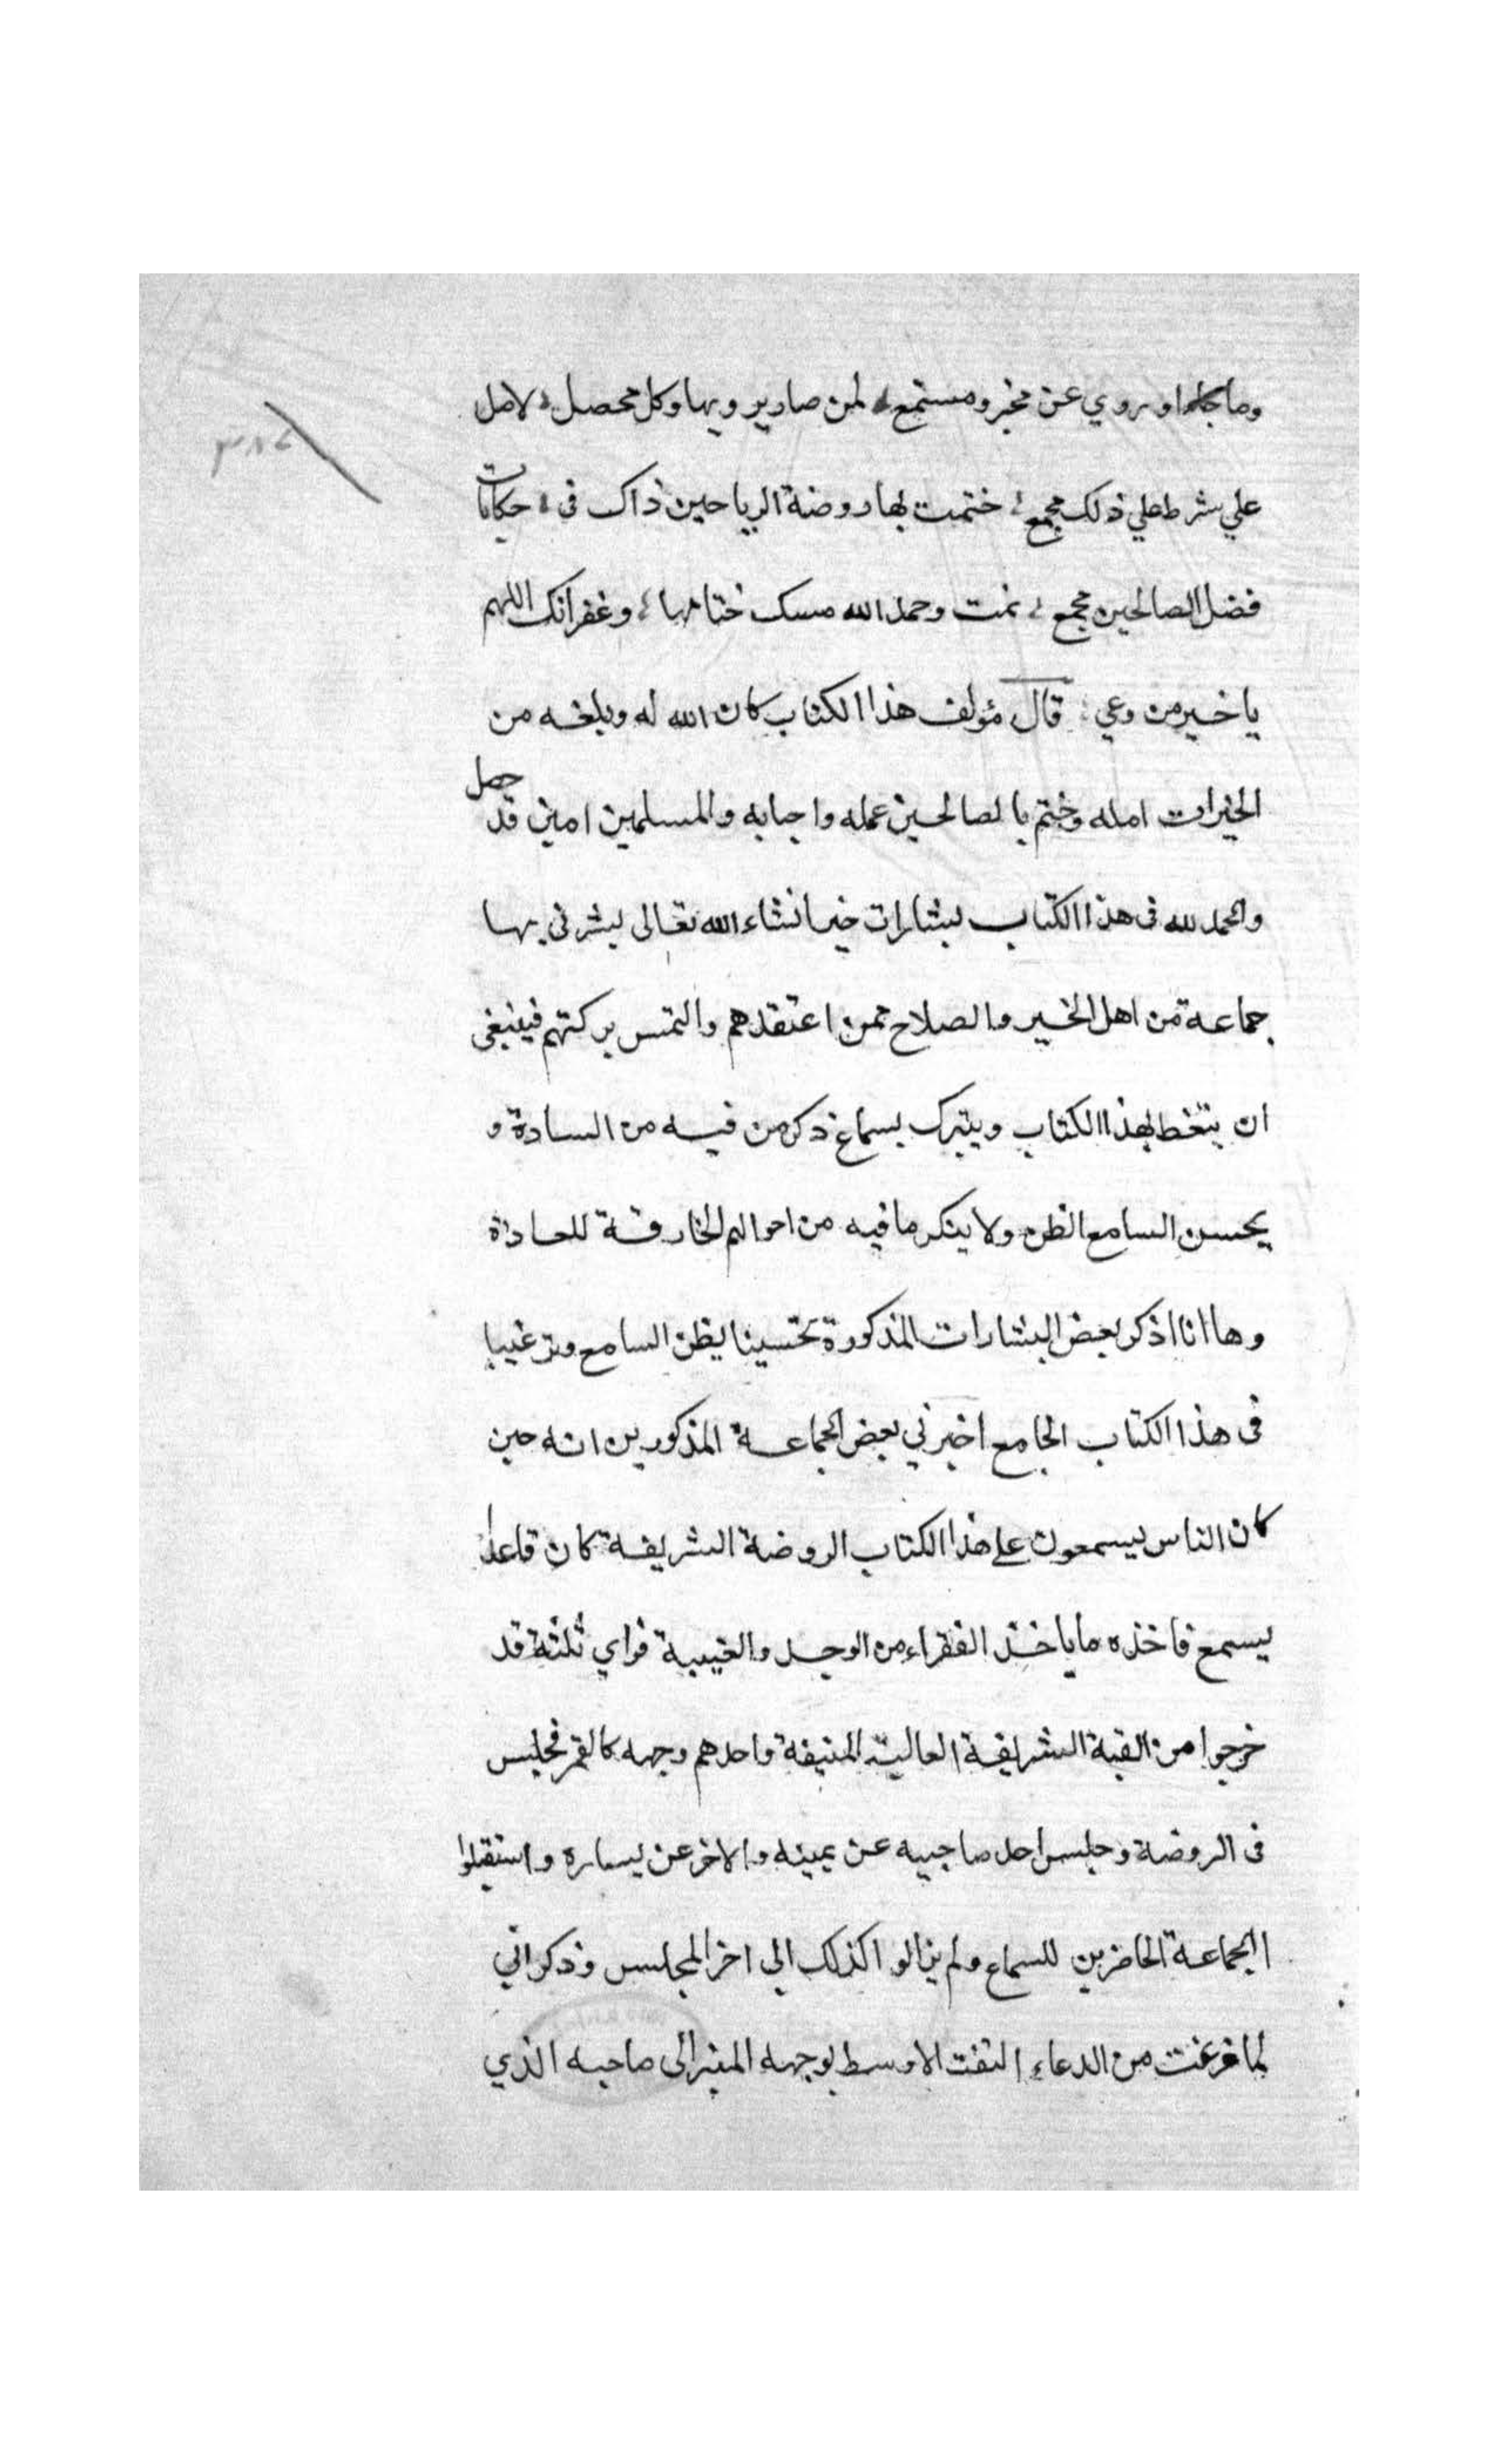 وما جا او روي عن مخبر ومستمع لمن صار يرويها وكل محصل لاصل
علي شرط علي ذلك مجمع ختمت بها روضة الرياحين ذاك في حكايات
فضل الصالحين مجمع تمت وحمد الله مسك ختامها وغفرانك اللهم
يا خير من وعي قال مؤلف هذا الكتاب كان الله له وبلغه من
الخيرات امله وختم بالصالحين عمله واحبابه والمسلمين امين قد حصل
والحمد لله في هذا الكتاب بشارات خير انشاء الله تعالى بشرني بها
جماعة من اهل الخير والصلاح ممن اعتقدهم والتمس بركتهم فينبغي
ان يتعظ بهذا الكتاب ويتبرك بسماع ذكر من فيه من السادة و
يحسن السامع الظن ولا ينكر ما فيه من احوالهم الخارقة للعادة
وها انا اذكر بعض البشارات المذكورة تحسينا لظن السامع وترغيبا
في هذا الكتاب الجامع اخبرني بعض الجماعة المذكورين انه حين
كان الناس يسمعون علي هذا الكتاب الروضة الشريفة كان قاعدا
يسمع فاخذه ما ياخذ الفقراء من الوجد والغيبة فراي ثلثة قد
خرجوا من القبة الشريفة العالية المنيفة واحدهم وجهه كالقمر فجلس
في الروضة وجلس احد صاحبيه عن يمينه والاخر عن يساره واستقبلوا
الجماعة الحاضرين للسماع ولم يزالوا كذلك الي اخر المجلس وذكر اني
لما فرغت من الدعاء التفت الاوسط بوجهه المنير الى صاحبه الذي